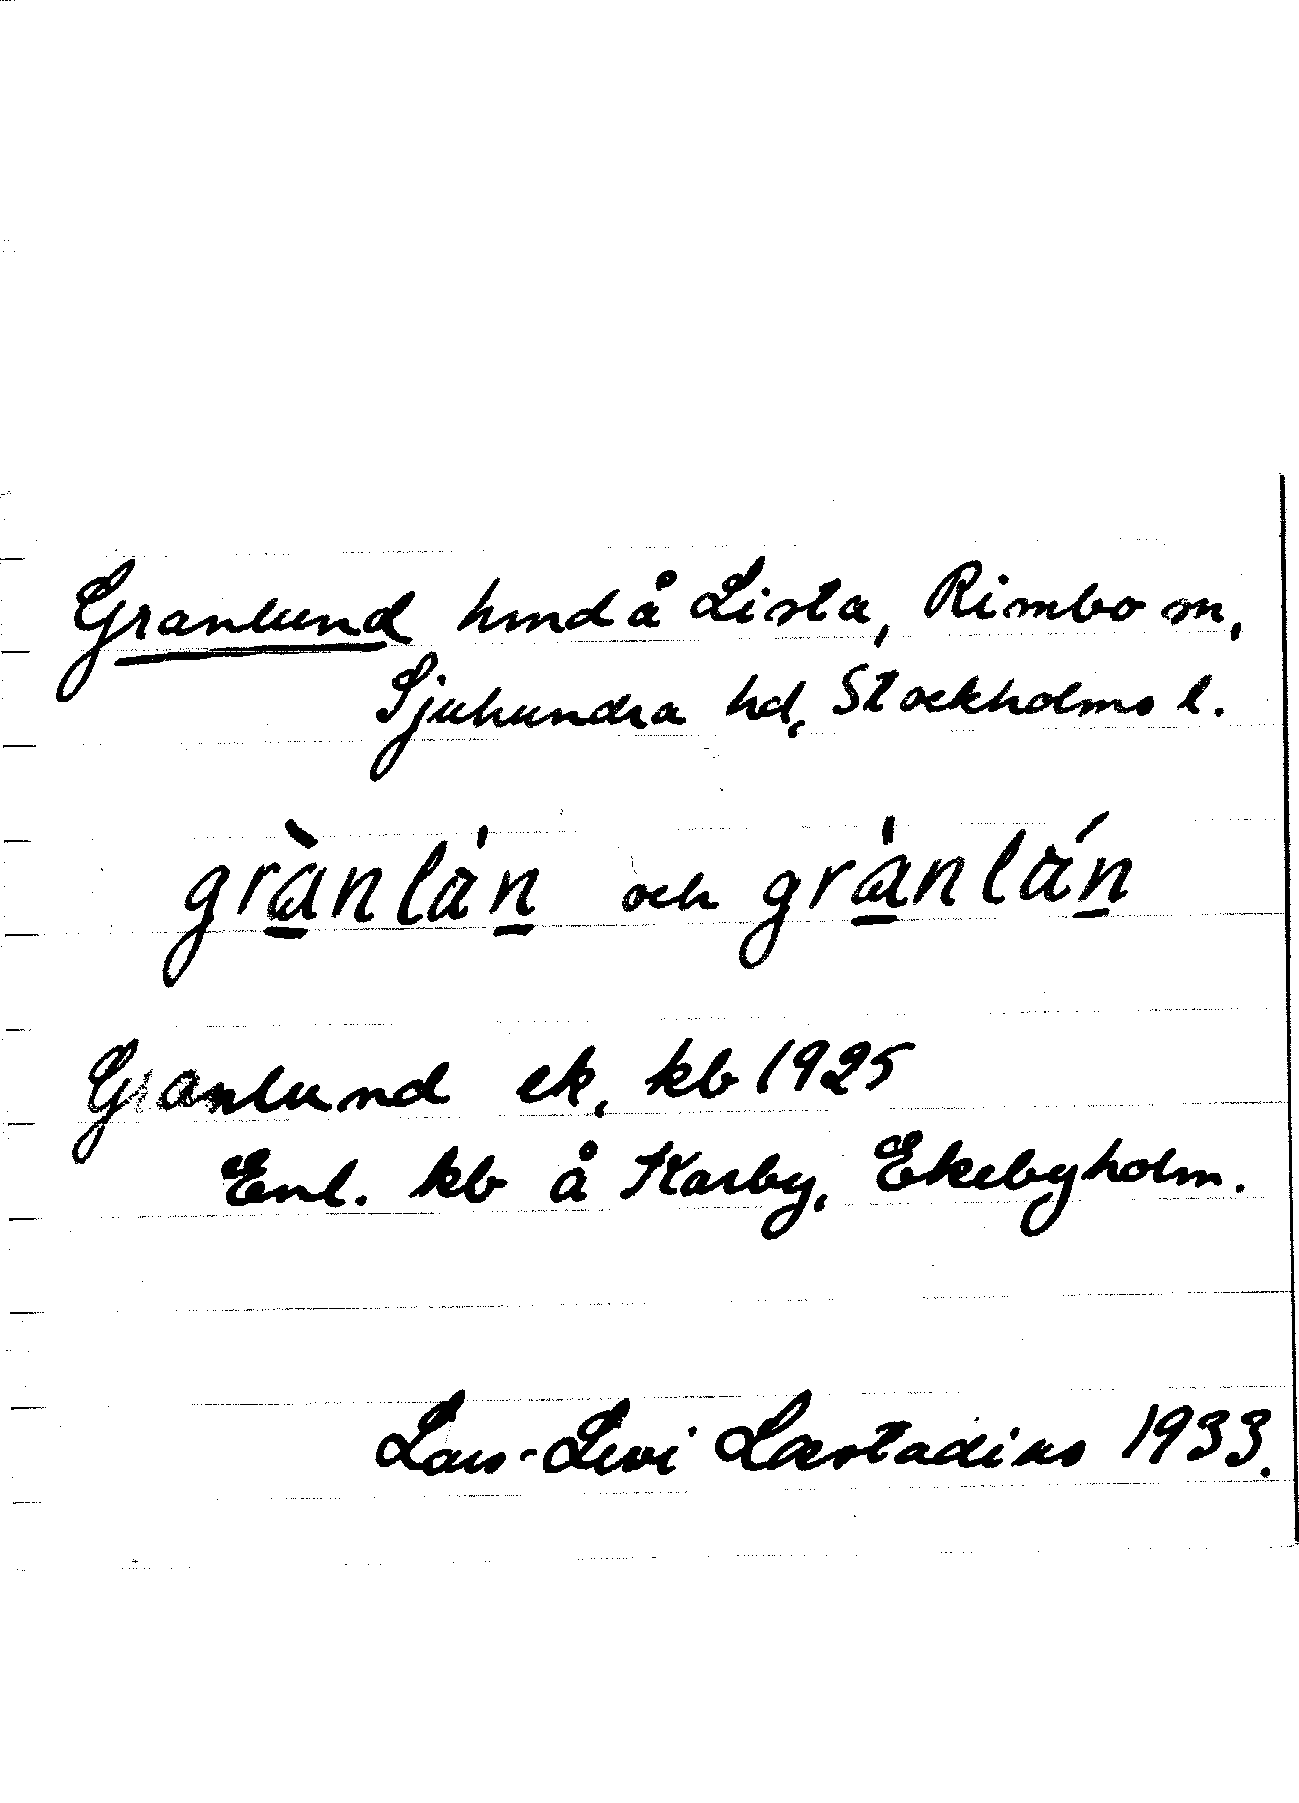 Granlund hmd å Lista, Rimbo sn,
Sjuhundra hd, Stockholms l.
grànlàn och grànlán
Granlund ek, kb 1925
Enl. kb å Karby, Ekebyholm.
Lars-Levi Læstadius 1933.